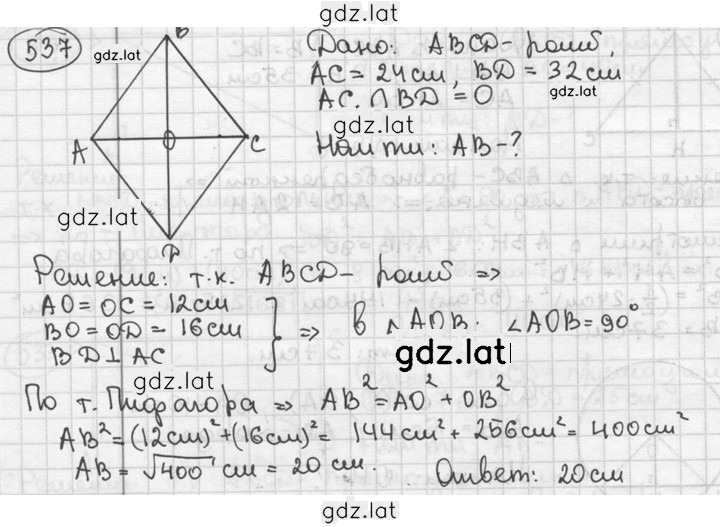 gdz.lat
537
gdz.lat
B
A
O
C
D
gdz.lat
Дано: ABCD - ромб,
AC = 24 см, BD = 32 см
gdz.lat
AC ∩ BD = O
gdz.lat
Найти: AB - ?
Решение: т.к. ABCD - ромб =>
AO = OC = 12 см
BO = OD = 16 см
BD ⊥ AC
} => в △ AOB: ∠AOB = 90°
gdz.lat
gdz.lat
По т. Пифагора => AB² = AO² + OB²
AB² = (12 см)² + (16 см)² = 144 см² + 256 см² = 400 см²
AB = √400 см = 20 см. Ответ: 20 см
gdz.lat